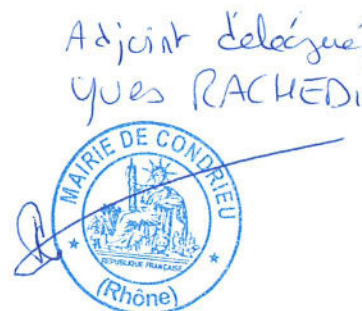 Adjoint délégué
Yves RACHEDI
MAIRIE DE CONDRIEU
REPUBLIQUE FRANÇAISE
(Rhône)